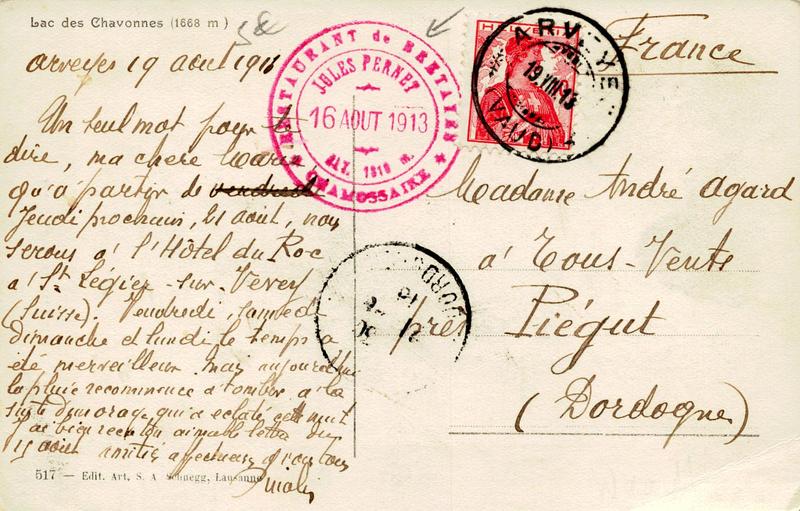 Lac des Chavonnes (1668 m)
Arveyes 19 août 191
Un seul mot pour te
dire, ma chère Marie
qu'à partir de vendredi
Jeudi prochain, 21 août, nous
serons à l'Hôtel du Roc
à St Légier-sur-Vevey
(Suisse). Vendredi, samedi
dimanche et lundi le temps a
été merveilleux mais aujourd'hui
la pluie recommence à tomber à la
suite d'un orage qui a éclaté cette nuit
ai bien reçu ton aimable lettre du
15 août amitiés
517 — Edit. Art. S. A. Schnegg, Lausanne
RESTAURANT de BRETAYE
JULES PERNET
16 AOUT 1913
ALT. 1810 m.
CHAMOSSAIRE
HELVETIA
ARVEYES
19.VIII.13
(VAUD)
France
Madame André Agard
à Tous-Vents
près Piégut
(Dordogne)
DORDOGNE
21